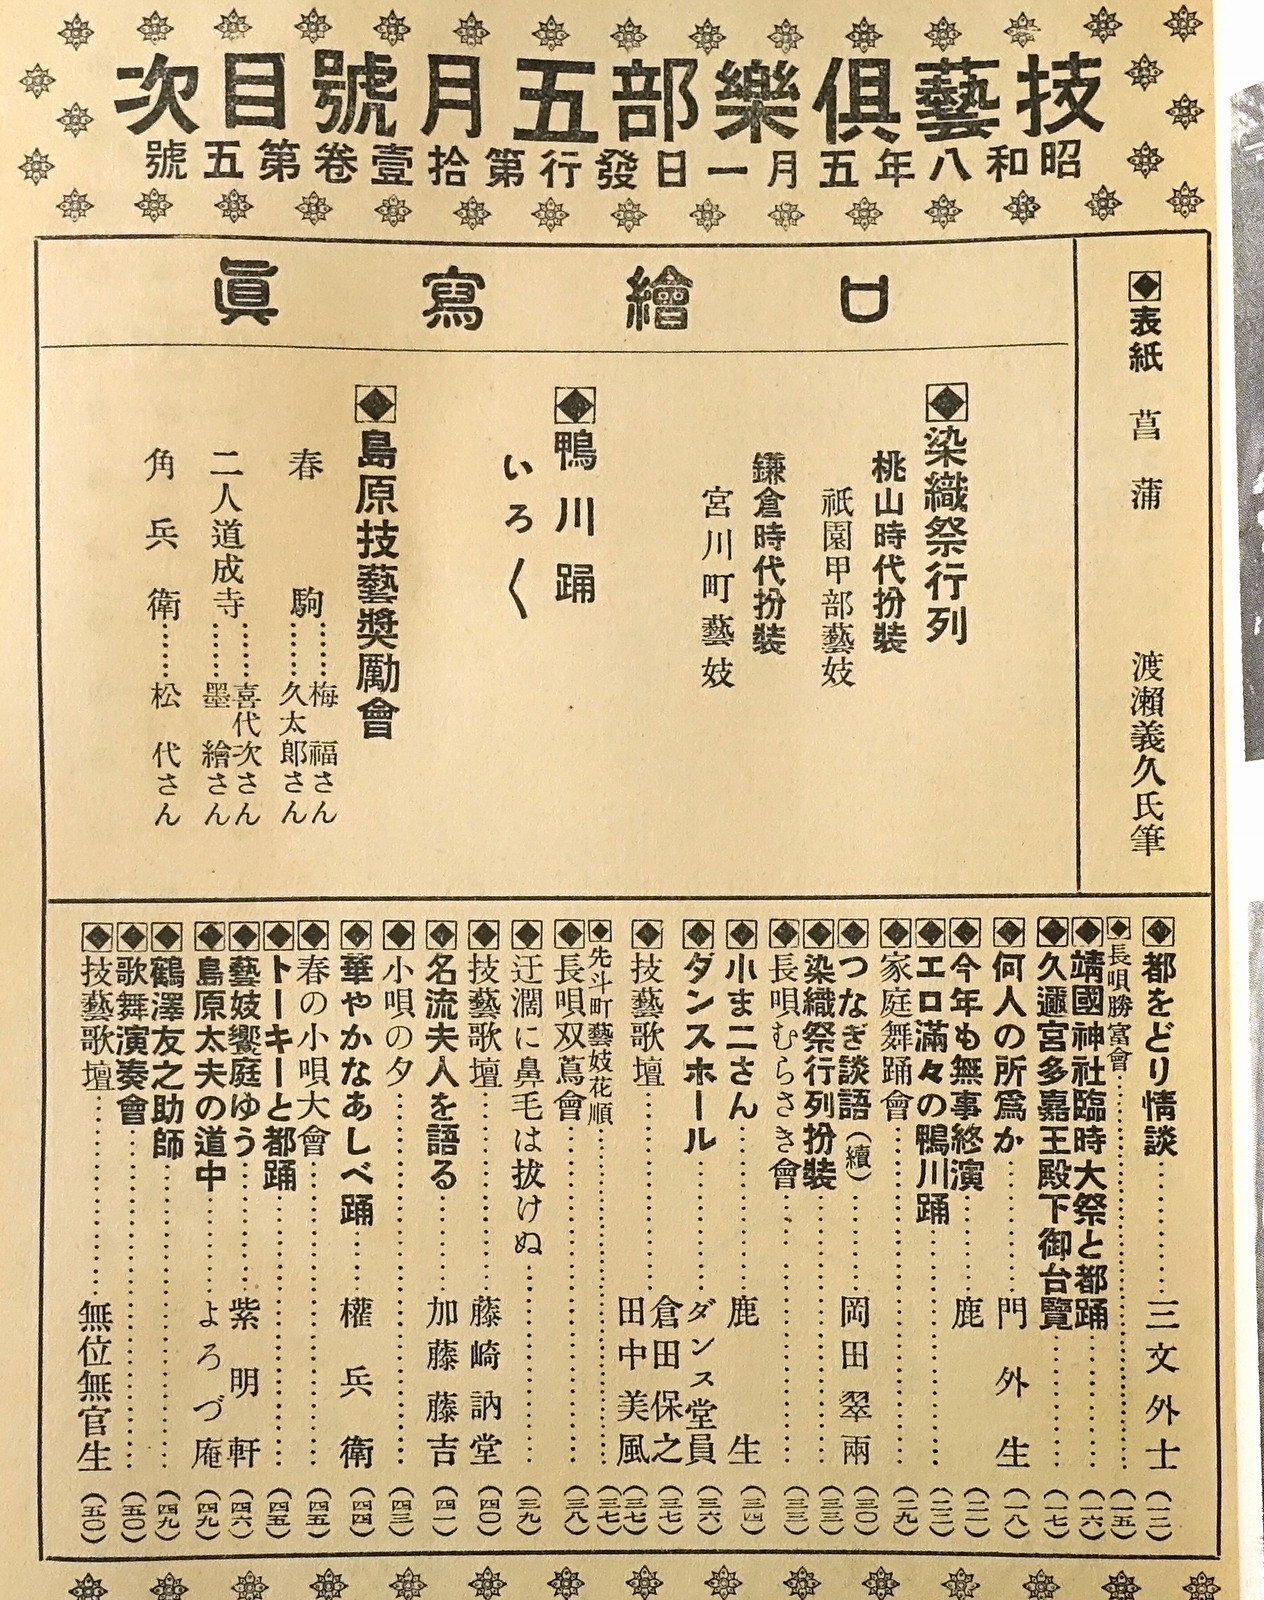 技藝俱樂部五月號目次
昭和八年五月一日發行第拾壹卷第五號
表紙 菖蒲 渡瀬義久氏筆
口繪寫眞
染織祭行列
桃山時代扮裝
祇園甲部藝妓
鎌倉時代扮裝
宮川町藝妓
鴨川踊
いろ〱
島原技藝獎勵會
春駒……梅福さん
久太郎さん
二人道成寺……喜代次さん
墨繪さん
角兵衛……松代さん
都をどり情談……三文外士(一二)
長唄勝富會……(一五)
靖國神社臨時大祭と都踊……(一六)
久邇宮多嘉王殿下御台覽……(一七)
何人の所爲か……門外生(一八)
今年も無事終演……鹿(二一)
エロ滿々の鴨川踊……(二二)
家庭舞踊會……(二九)
つなぎ談語(續)……岡田翠雨(三〇)
染織祭行列扮裝……(三三)
長唄むらさき會……(三三)
小まニさん……鹿生(三四)
ダンスホール……ダンス堂員(三六)
技藝歌壇……倉田保之(三七)
田中美風(三七)
先斗町藝妓花順……(三七)
長唄双蔦會……(三八)
迂濶に鼻毛は拔けぬ……(三九)
技藝歌壇……藤崎訥堂(四〇)
名流夫人を語る……加藤藤吉(四一)
小唄の夕……(四三)
華やかなあしべ踊……權兵衛(四四)
春の小唄大會……(四五)
トーキーと都踊……(四五)
藝妓饗庭ゆう……紫明軒(四六)
島原太夫の道中……よろづ庵(四九)
鶴澤友之助師……(四九)
歌舞演奏會……(五〇)
技藝歌壇……無位無官生(五〇)